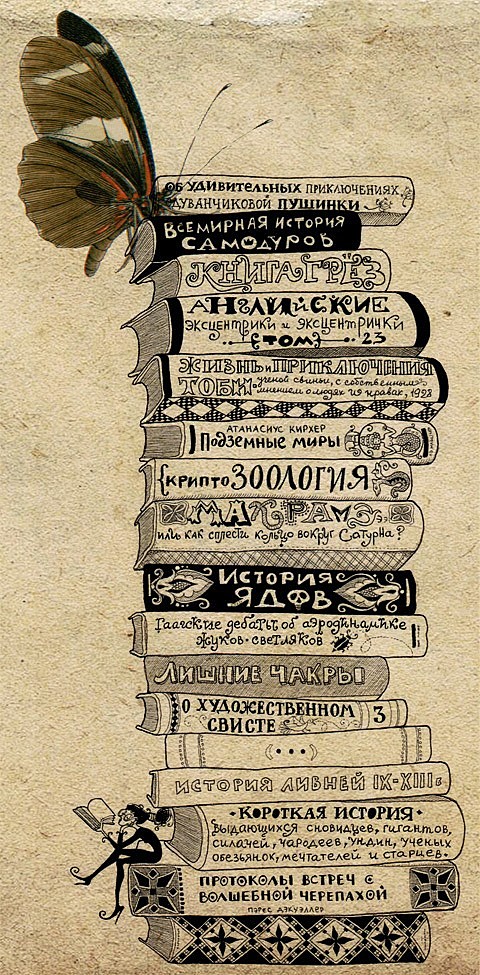 Об удивительных приключениях
одуванчиковой пушинки
Всемирная история
самодуров
Книга грёз
Английские
эксцентрики и эксцентрички
(том) 23
Жизнь и приключения
Тоби
ученой свиньи, с собственным
мнением о людях и нравах, 1998
Атанасиус Кирхер
Подземные миры
{крипто зоология
Макраме,
или как сплести кольцо вокруг Сатурна?
История
ядов
Гаагские дебаты об аэродинамике
жуков-светляков
Лишние чакры
О художественном
свисте
3
(...)
История ливней IX-XIII в
• Короткая история •
выдающихся сновидцев, гигантов,
силачей, чародеев, ундин, ученых
обезьянок, мечтателей и старцев.
Протоколы встреч с
волшебной черепахой